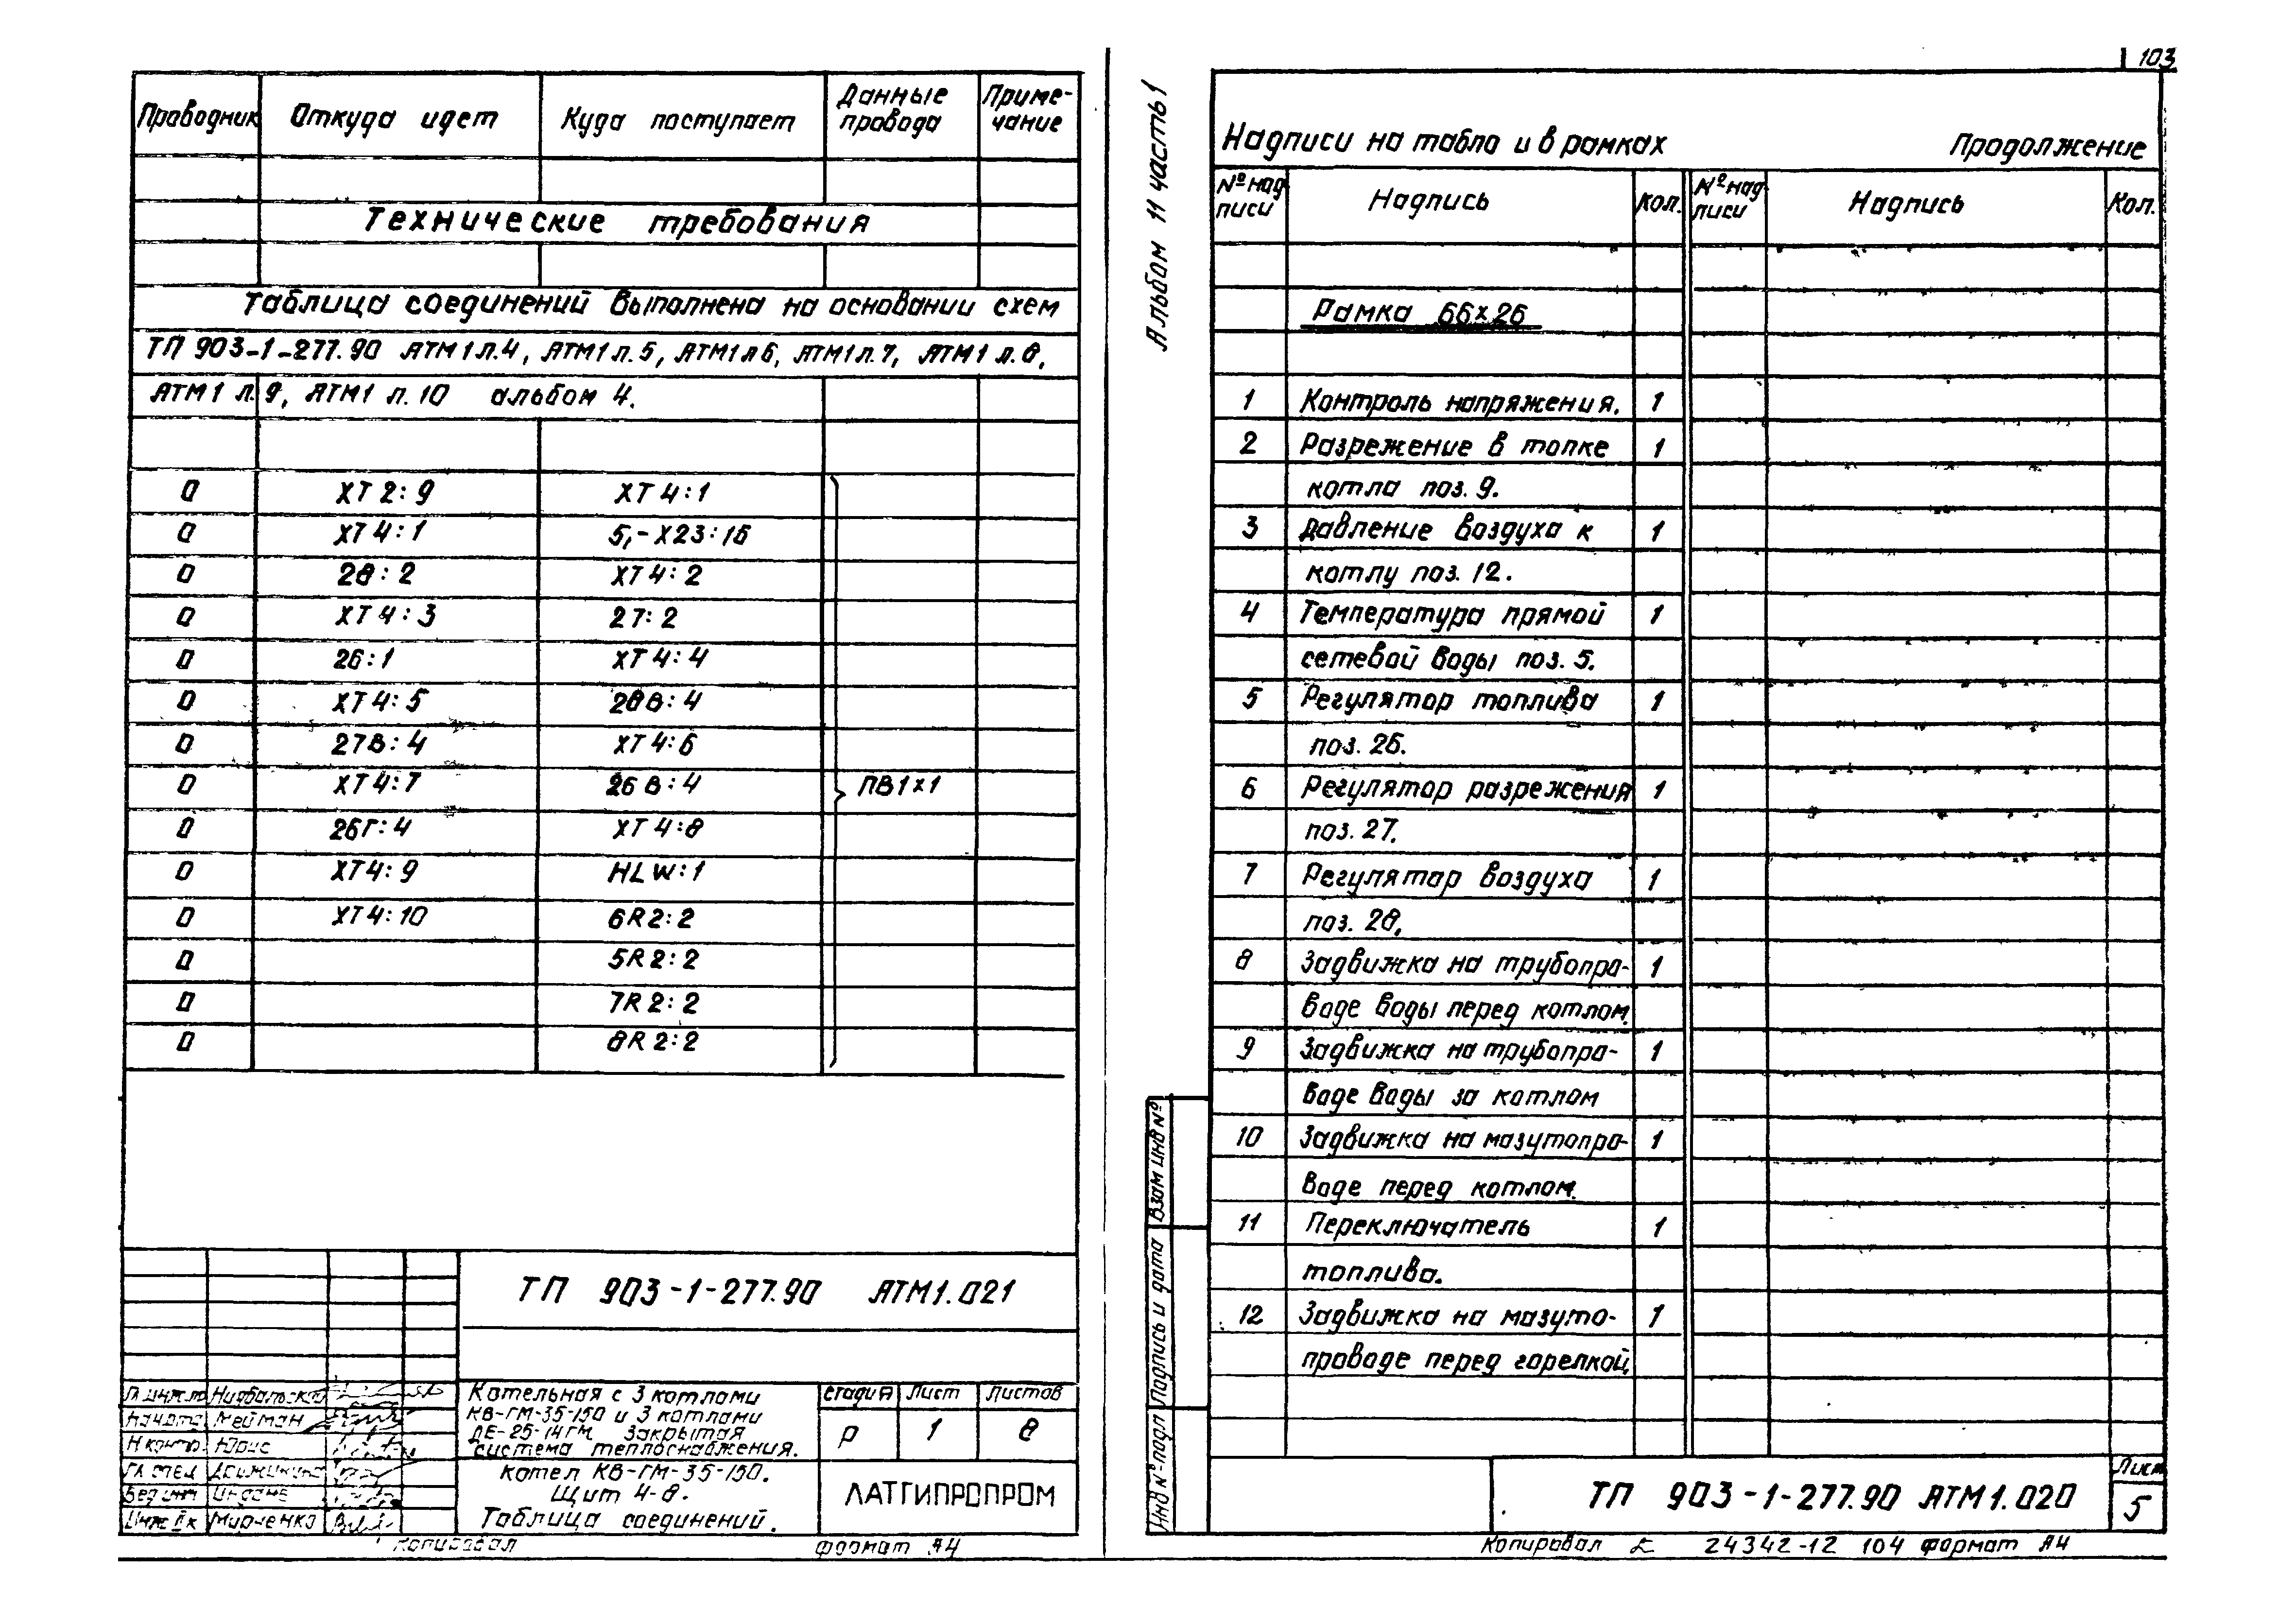 Проводник Откуда идет Куда поступает Данные провода Приме-чание
Технические требования
Таблица соединений выполнена на основании схем
ТП 903-1-277.90 АТМ1 л.4, АТМ1 л.5, АТМ1 л6, АТМ1 л.7, АТМ1 л.8,
АТМ1 л.9, АТМ1 л.10 альбом 4.
0 XT2:9 XT4:1
0 XT4:1 5,-X23:16
0 28:2 XT4:2
0 XT4:3 27:2
0 26:1 XT4:4
0 XT4:5 28В:4
0 27В:4 XT4:6
0 XT4:7 26В:4 ПВ1х1
0 26Г:4 XT4:8
0 XT4:9 HLW:1
0 XT4:10 6R2:2
0 5R2:2
0 7R2:2
0 8R2:2
ТП 903-1-277.90 АТМ1.021
Котельная с 3 котлами
КВ-ГМ-35-150 и 3 котлами
ДЕ-25-14ГМ. Закрытая
система теплоснабжения.
Стадия Лист Листов
Р 1 8
Мейман
Н контр. Юрис
Марченко
Котел КВ-ГМ-35-150.
Щит 4-8.
Таблица соединений.
ЛАТГИПРОПРОМ
Копировал Формат А4
103
Альбом 11 часть 1
Надписи на табло и в рамках Продолжение
№ над писи Надпись Кол. № над писи Надпись Кол.
Рамка 66х26
1 Контроль напряжения. 1
2 Разрежение в топке 1
котла поз. 9.
3 Давление воздуха к 1
котлу поз. 12.
4 Температура прямой 1
сетевой воды поз. 5.
5 Регулятор топлива 1
поз. 26.
6 Регулятор разрежения 1
поз. 27.
7 Регулятор воздуха 1
поз. 28.
8 Задвижка на трубопро- 1
воде воды перед котлом.
9 Задвижка на трубопро- 1
воде воды за котлом
10 Задвижка на мазутопро- 1
воде перед котлом.
11 Переключатель 1
топлива.
12 Задвижка на мазуто- 1
проводе перед горелкой.
Взам инв №
Подпись и дата
Инв № подл
ТП 903-1-277.90 АТМ1.020
Лист
5
Копировал 24342-12 104 Формат А4